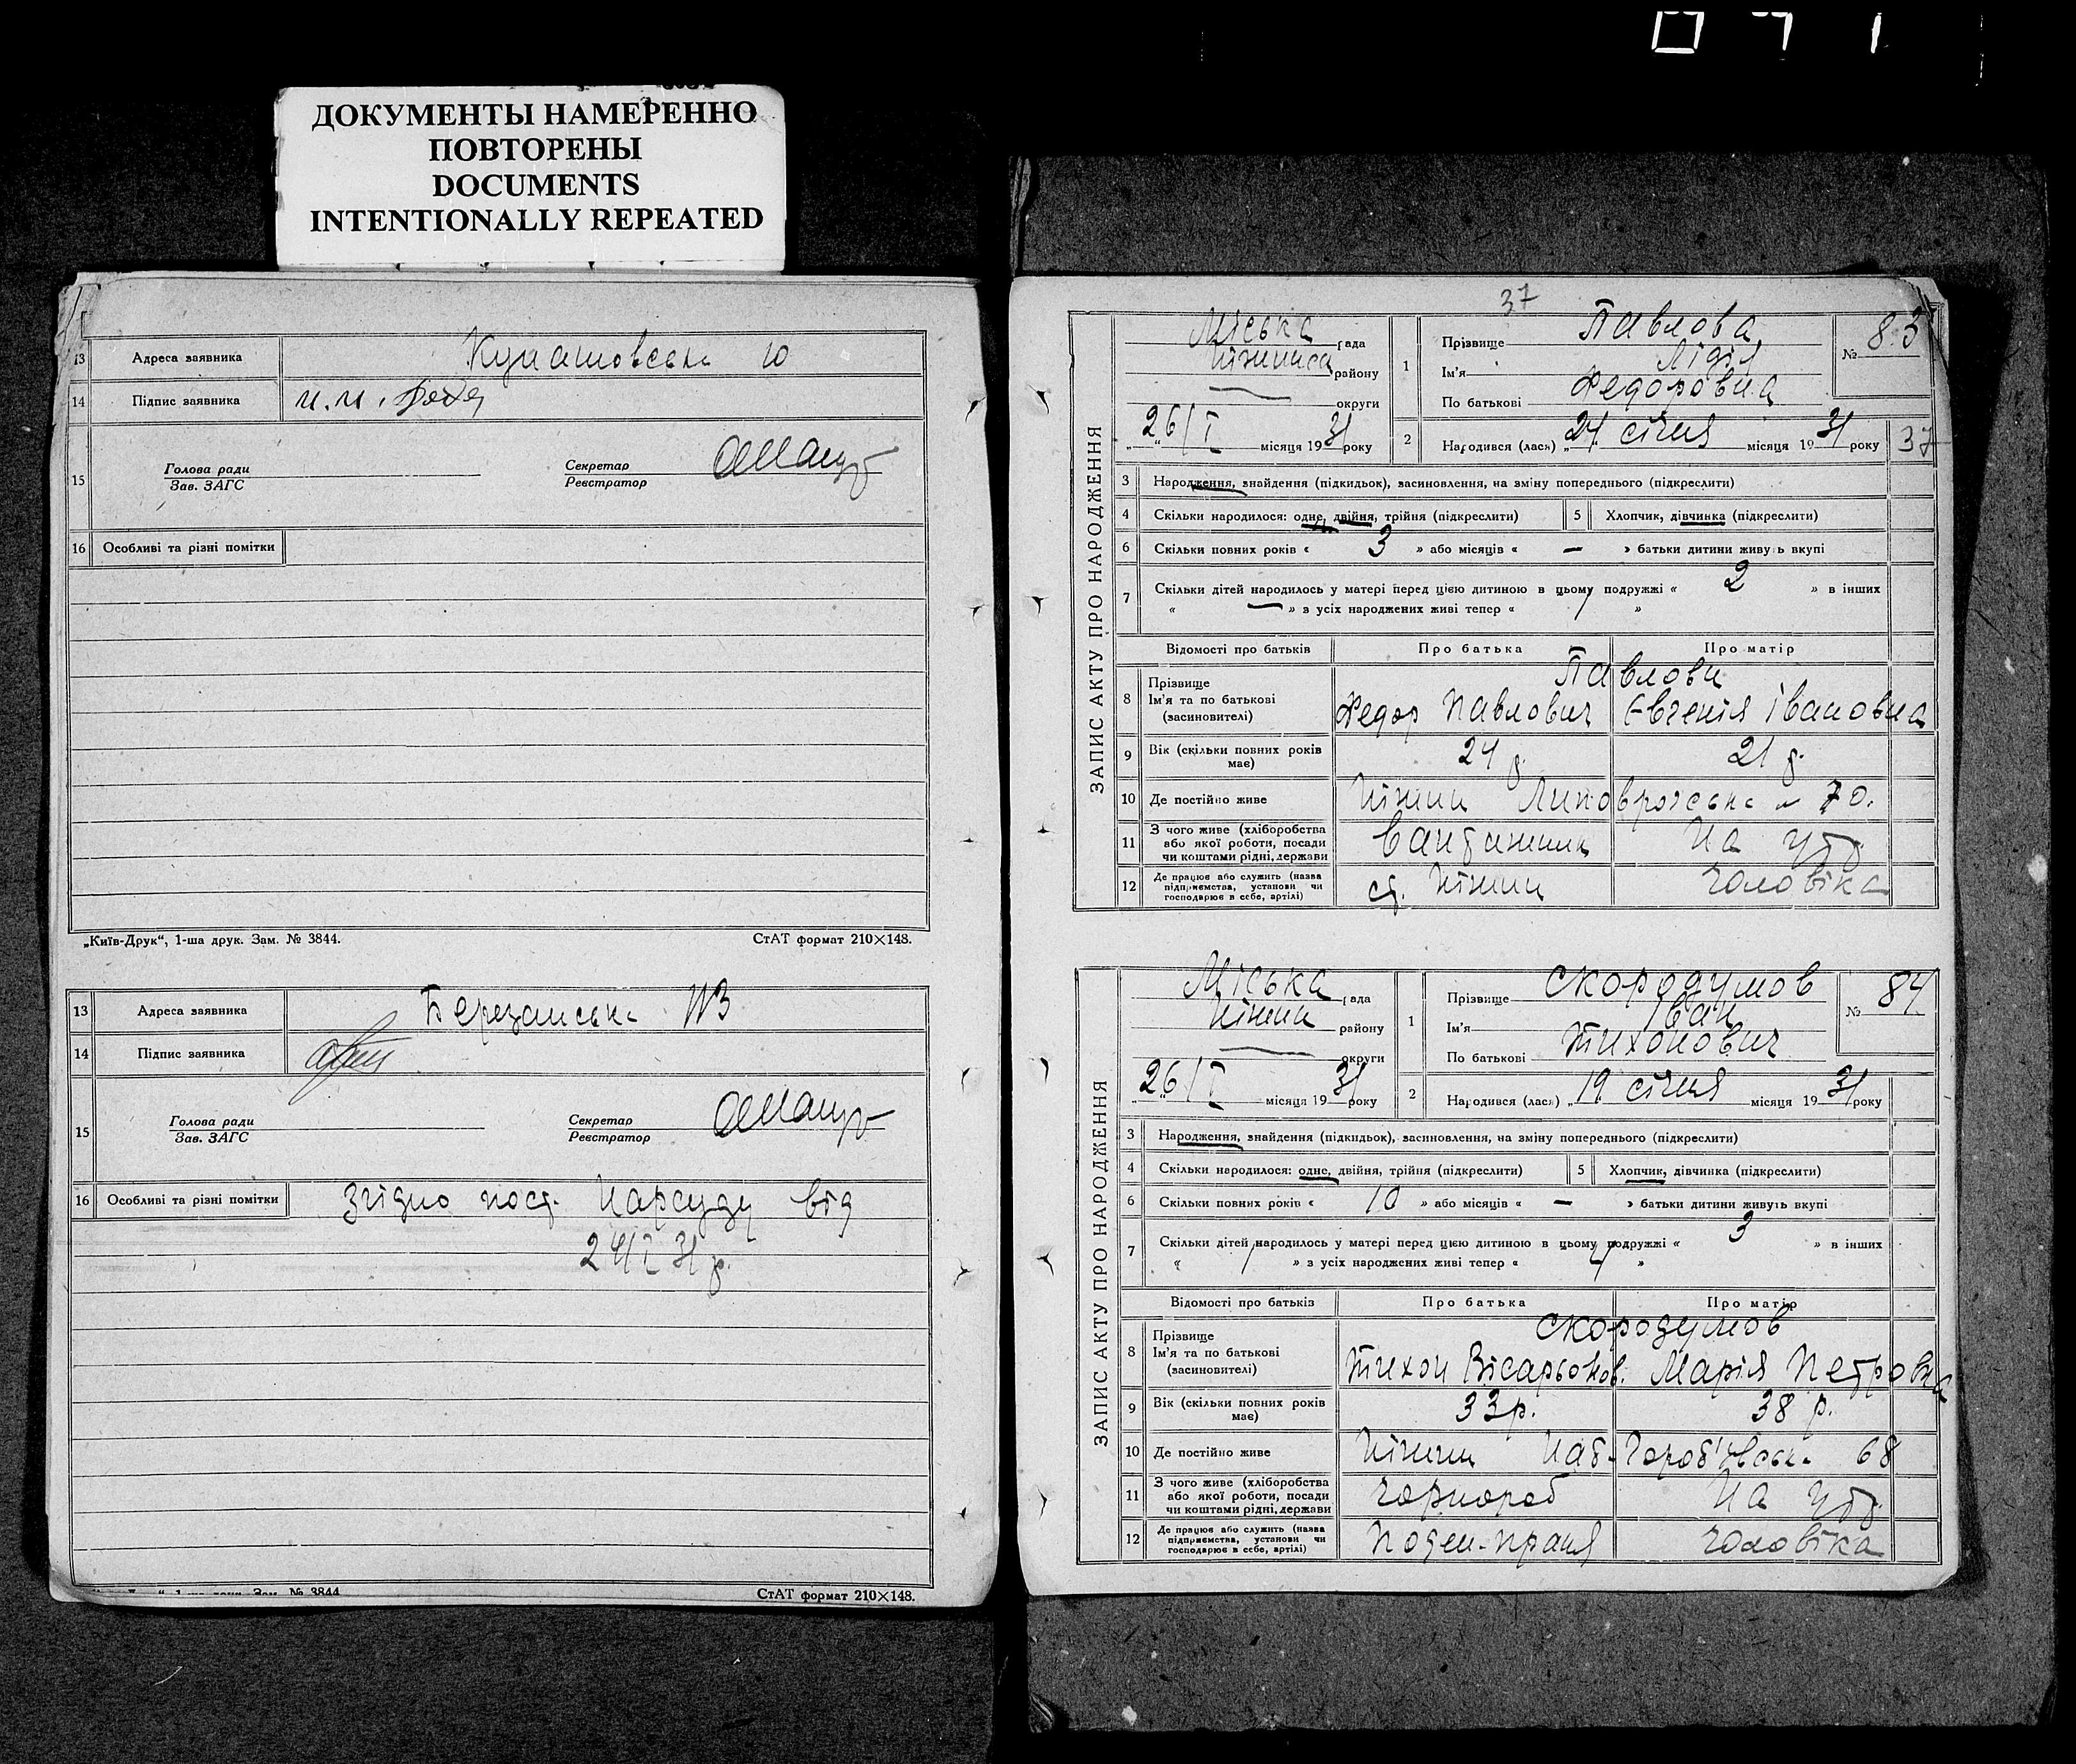 ДОКУМЕНТЫ НАМЕРЕННО
ПОВТОРЕНЫ
DOCUMENTS
INTENTIONALLY REPEATED
13 Адреса заявника
14 Підпис заявника
15 Голова ради
Зав. ЗАГС
Секретар
Реєстратор
16 Особливі та різні помітки
„Київ-Друк“, 1-ша друк. Зам. № 3844.
СтАТ формат 210×148.
13 Адреса заявника Березанська №3
14 Підпис заявника
15 Голова ради
Зав. ЗАГС
Секретар
Реєстратор
16 Особливі та різні помітки Згідно пост. Нарсуду від
24/I 31 р.
Зам. № 3844
СтАТ формат 210×148.
37
ЗАПИС АКТУ ПРО НАРОДЖЕННЯ
Міська рада
району
округи
„26/I“ місяця 1931 року
1 Прізвище Павлова
Ім'я Лідія
По батькові Федоровна
№ 83
2 Народився (лася) „24 січня місяця 1931 року
37
3 Народження, знайдення (підкидьок), засиновлення, на зміну попереднього (підкреслити)
4 Скільки народилося: одне, двійня, трійня (підкреслити)
5 Хлопчик, дівчинка (підкреслити)
6 Скільки повних років « 3 » або місяців « — » батьки дитини живуть вкупі
7 Скільки дітей народилось у матері перед цією дитиною в цьому подружжі « 2 » в інших
« — » з усіх народжених живі тепер « 1 »
Відомості про батьків Про батька Про матір
8 Прізвище
Ім'я та по батькові
(засиновителі)
Павлови
Федор Павлович Євгенія Івановна
9 Вік (скільки повних років має) 24 р. 21 р.
10 Де постійно живе Ніжин 70.
11 З чого живе (хліборобства або якої роботи, посади чи коштами рідні, держави Вантажник На утр.
12 Де працює або служить (назва підприємства, установи чи господарює в себе, артілі) ст. Ніжин чоловіка
ЗАПИС АКТУ ПРО НАРОДЖЕННЯ
Міська рада
Ніжин району
округи
„26/I“ місяця 1931 року
1 Прізвище Скородумов
Ім'я Іван
По батькові Тихонович
№ 84
2 Народився (лася) „19 січня місяця 1931 року
3 Народження, знайдення (підкидьок), засиновлення, на зміну попереднього (підкреслити)
4 Скільки народилося: одне, двійня, трійня (підкреслити)
5 Хлопчик, дівчинка (підкреслити)
6 Скільки повних років « 10 » або місяців « — » батьки дитини живуть вкупі
7 Скільки дітей народилось у матері перед цією дитиною в цьому подружжі « 3 » в інших
« 1 » з усіх народжених живі тепер « 4 »
Відомості про батьків Про батька Про матір
8 Прізвище
Ім'я та по батькові
(засиновителі)
Скородумов
Тихон Вісарьонов. Марія Петровна
9 Вік (скільки повних років має) 33 р. 38 р.
10 Де постійно живе Ніжин Наб- 68
11 З чого живе (хліборобства або якої роботи, посади чи коштами рідні, держави чорнороб На утр.
12 Де працює або служить (назва підприємства, установи чи господарює в себе, артілі) Поден-праця чоловіка